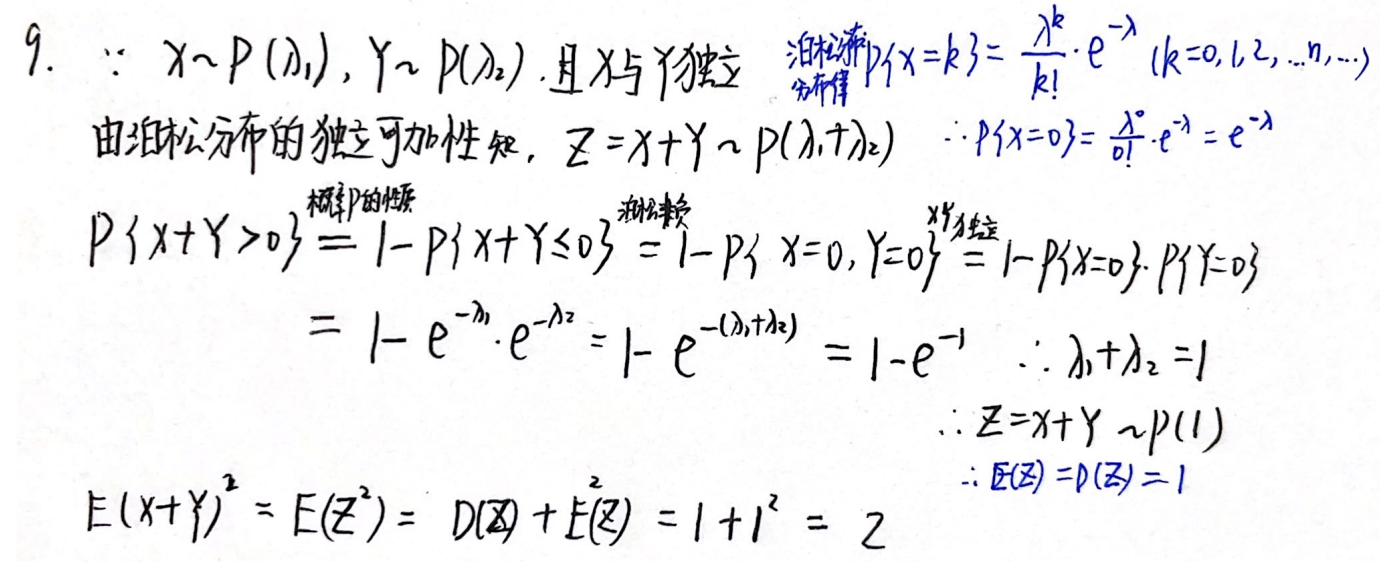 9. ∵ X~P(λ₁), Y~P(λ₂), 且X与Y独立 泊松分布分布律P{X=k}= λ^k/k! · e^{-λ} (k=0,1,2,...n,...)
由泊松分布的独立可加性知, Z=X+Y~P(λ₁+λ₂) ∴P{X=0}= λ⁰/0! · e^{-λ} = e^{-λ}
概率P的性质 X Y独立
P{X+Y>0} = 1-P{X+Y≤0} = 1-P{X=0,Y=0} = 1-P{X=0}·P{Y=0}
= 1-e^{-λ₁}·e^{-λ₂} = 1-e^{-(λ₁+λ₂)} = 1-e^{-1} ∴ λ₁+λ₂=1
∴ Z=X+Y~P(1)
∴ E(Z)=D(Z)=1
E(X+Y)² = E(Z²) = D(Z)+E²(Z) = 1+1² = 2